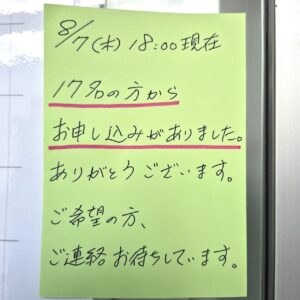 8/7(木) 18:00現在
17名の方から
お申し込みがありました。
ありがとうございます。
ご希望の方、
ご連絡お待ちしています。